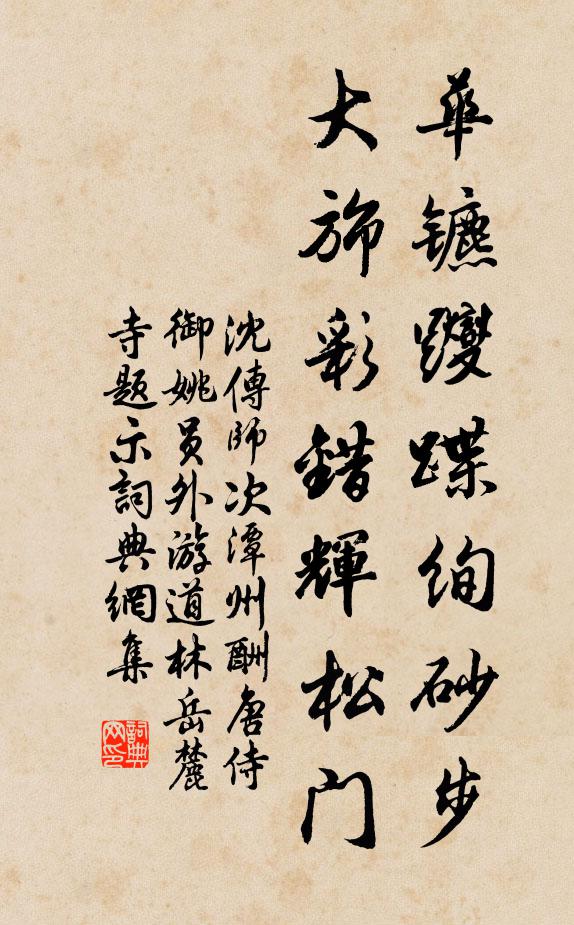 華鑣躞蹀絢砂步
大斾彩錯輝松門
沈傳師次潭州酬唐侍
御姚員外游道林岳麓
寺題示詞典網集
詞典网印